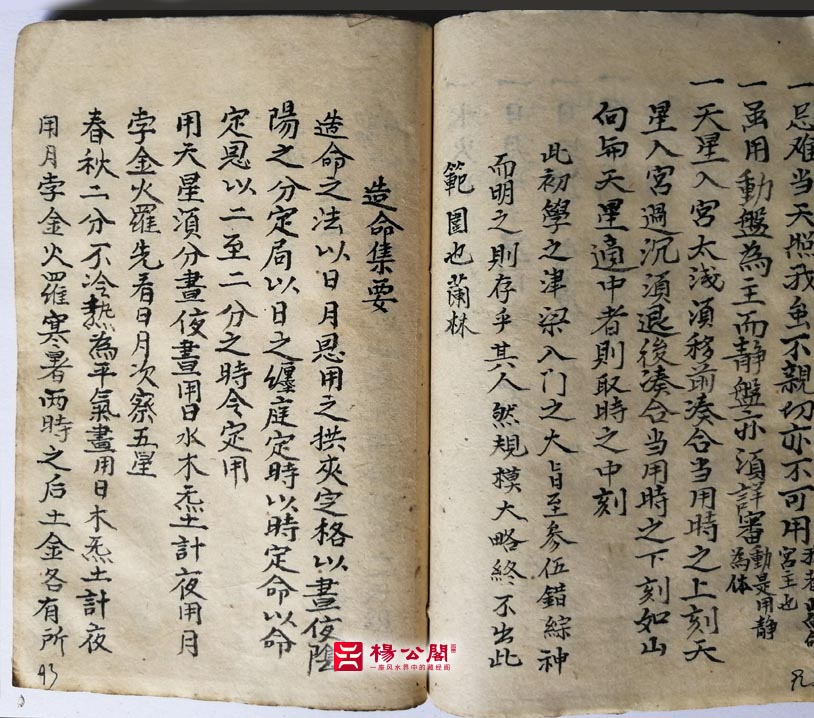 一忌难当天照我虽不親切亦不可用
宮主也
一虽用動盤為主而静盤亦須詳審
動是用静
為体
一天星入宮太浅須移前湊合当用時之上刻天
星入宮過沉須退後湊合当用時之下刻如山
向与天星適中者則取時之中刻
此初學之津梁入门之大旨至参伍錯綜神
而明之則存乎其人然規模大略終不出此
範圍也蘭林
造命集要
造命之法以日月恩用之拱夾定格以晝夜陰
陽之分定局以日之纏度定時以時定命以命
定恩以二至二分之時令定用
用天星須分晝夜晝用日水木炁土計夜用月
孛金火羅先看日月次察五星
春秋二分不冷熱為平氣晝用日木炁土計夜
用月孛金火羅寒暑兩時之后土金各有所
93
楊公閣
一座风水界中的藏经阁